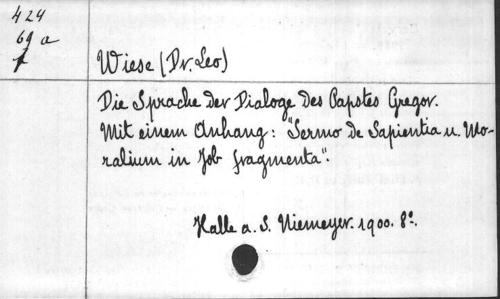 424
69 a
f
Wiese (Dr. Leo)
Die Sprache der Dialoge des Papstes Gregor.
Mit einem Anhang: "Sermo de Sapientia u. Mo-
ralium in Job fragmenta".
Halle a. S. Niemeyer. 1900. 8°.